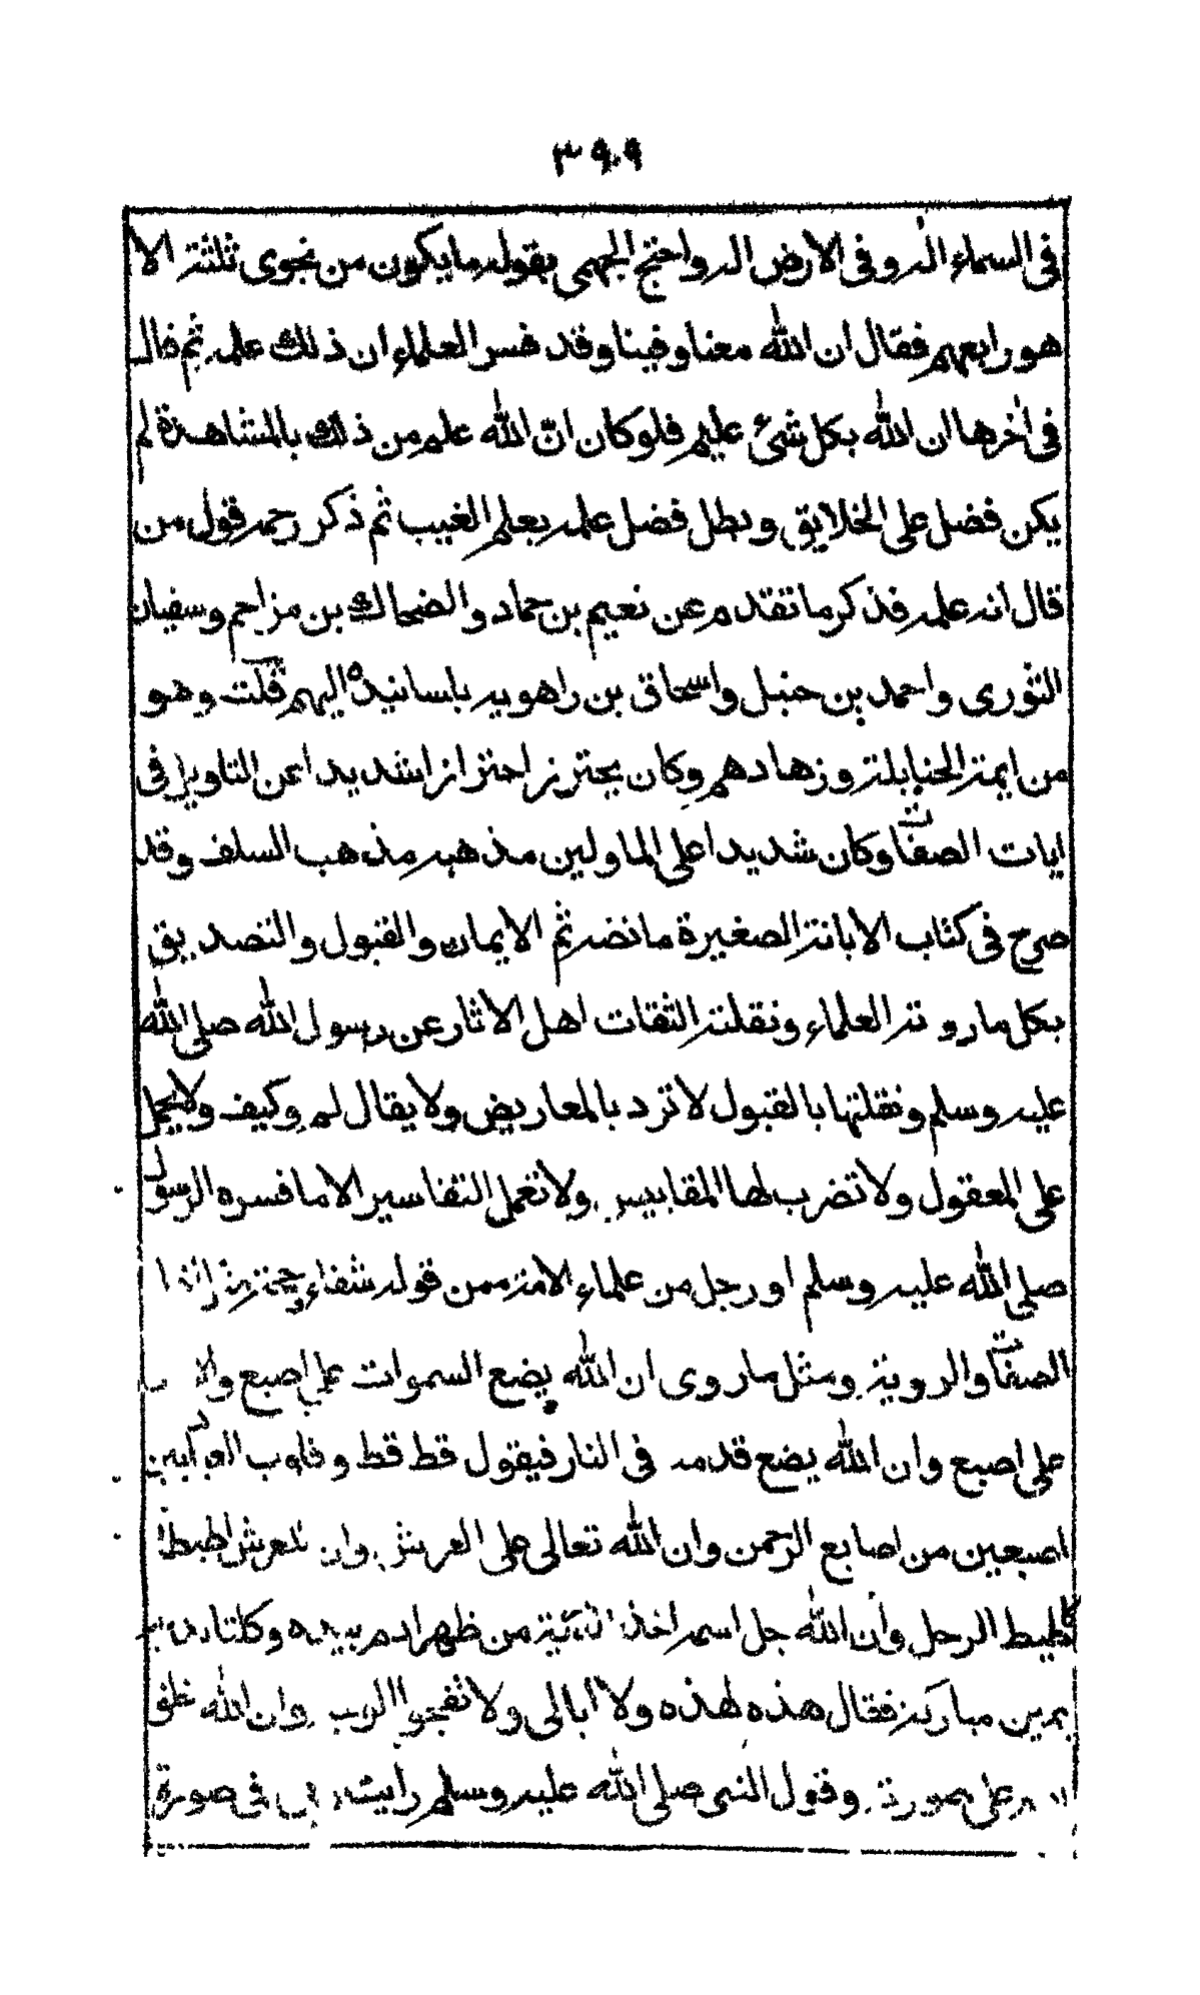 ٣٩٩
فى السماء اله وفى الارض اله واحتج الجهمى بقوله ما يكون من نجوى ثلثة الا
هو رابعهم فقال ان الله معنا وفينا وقد فسر العلماء ان ذلك علمه ثم قال
فى اٰخرها ان الله بكل شئ عليم فلو كان انّ الله علم من ذلك بالمشاهدة لم
يكن فضل على الخلايق وبطل فضل علمه بعلم الغيب ثم ذكر رحمه قول من
قال انه علمه فذكر ما تقدم عن نعيم بن حماد والضحاك بن مزاحم وسفيان
الثورى واحمد بن حنبل واسحاق بن راهويه باسانيده اليهم قلت وهو
من ايمة الحنابلة وزهادهم وكان يحترز احترازا شديدا عن التاويل فى
ايات الصفات وكان شديدا على الماولين مذهبه مذهب السلف وقد
صرح فى كتاب الابانة الصغيرة ما نصه ثم الايمان والقبول والتصديق
بكل ما روته العلماء ونقلته الثقات اهل الاثار عن رسول الله صلى الله
عليه وسلم ونقلتها بالقبول لا ترد بالمعاريض ولا يقال لم وكيف ولا يحمل
على المعقول ولا تضرب لها المقاييس ولا تعمل التفاسير الا ما فسره الرسول
صلى الله عليه وسلم او رجل من علماء الامة ممن قوله شفاء وحجة
الصفات والروية ومثل ما روى ان الله يضع السموات على اصبع
على اصبع وان الله يضع قدمه فى النار فيقول قط قط وقلوب العباد بين
اصبعين من اصابع الرحمن وان الله تعالى على العرش وان للعرش اطيطا
كاطيط الرحل وان الله جل اسمه اخذ من ظهر ادم بيده وكلتا
يمين مباركة فقال هذه لهذه ولا ابالى ولا تقبحوا وان الله خلق
على صورته وقول النبى صلى الله عليه وسلم رايت ربى فى صورة